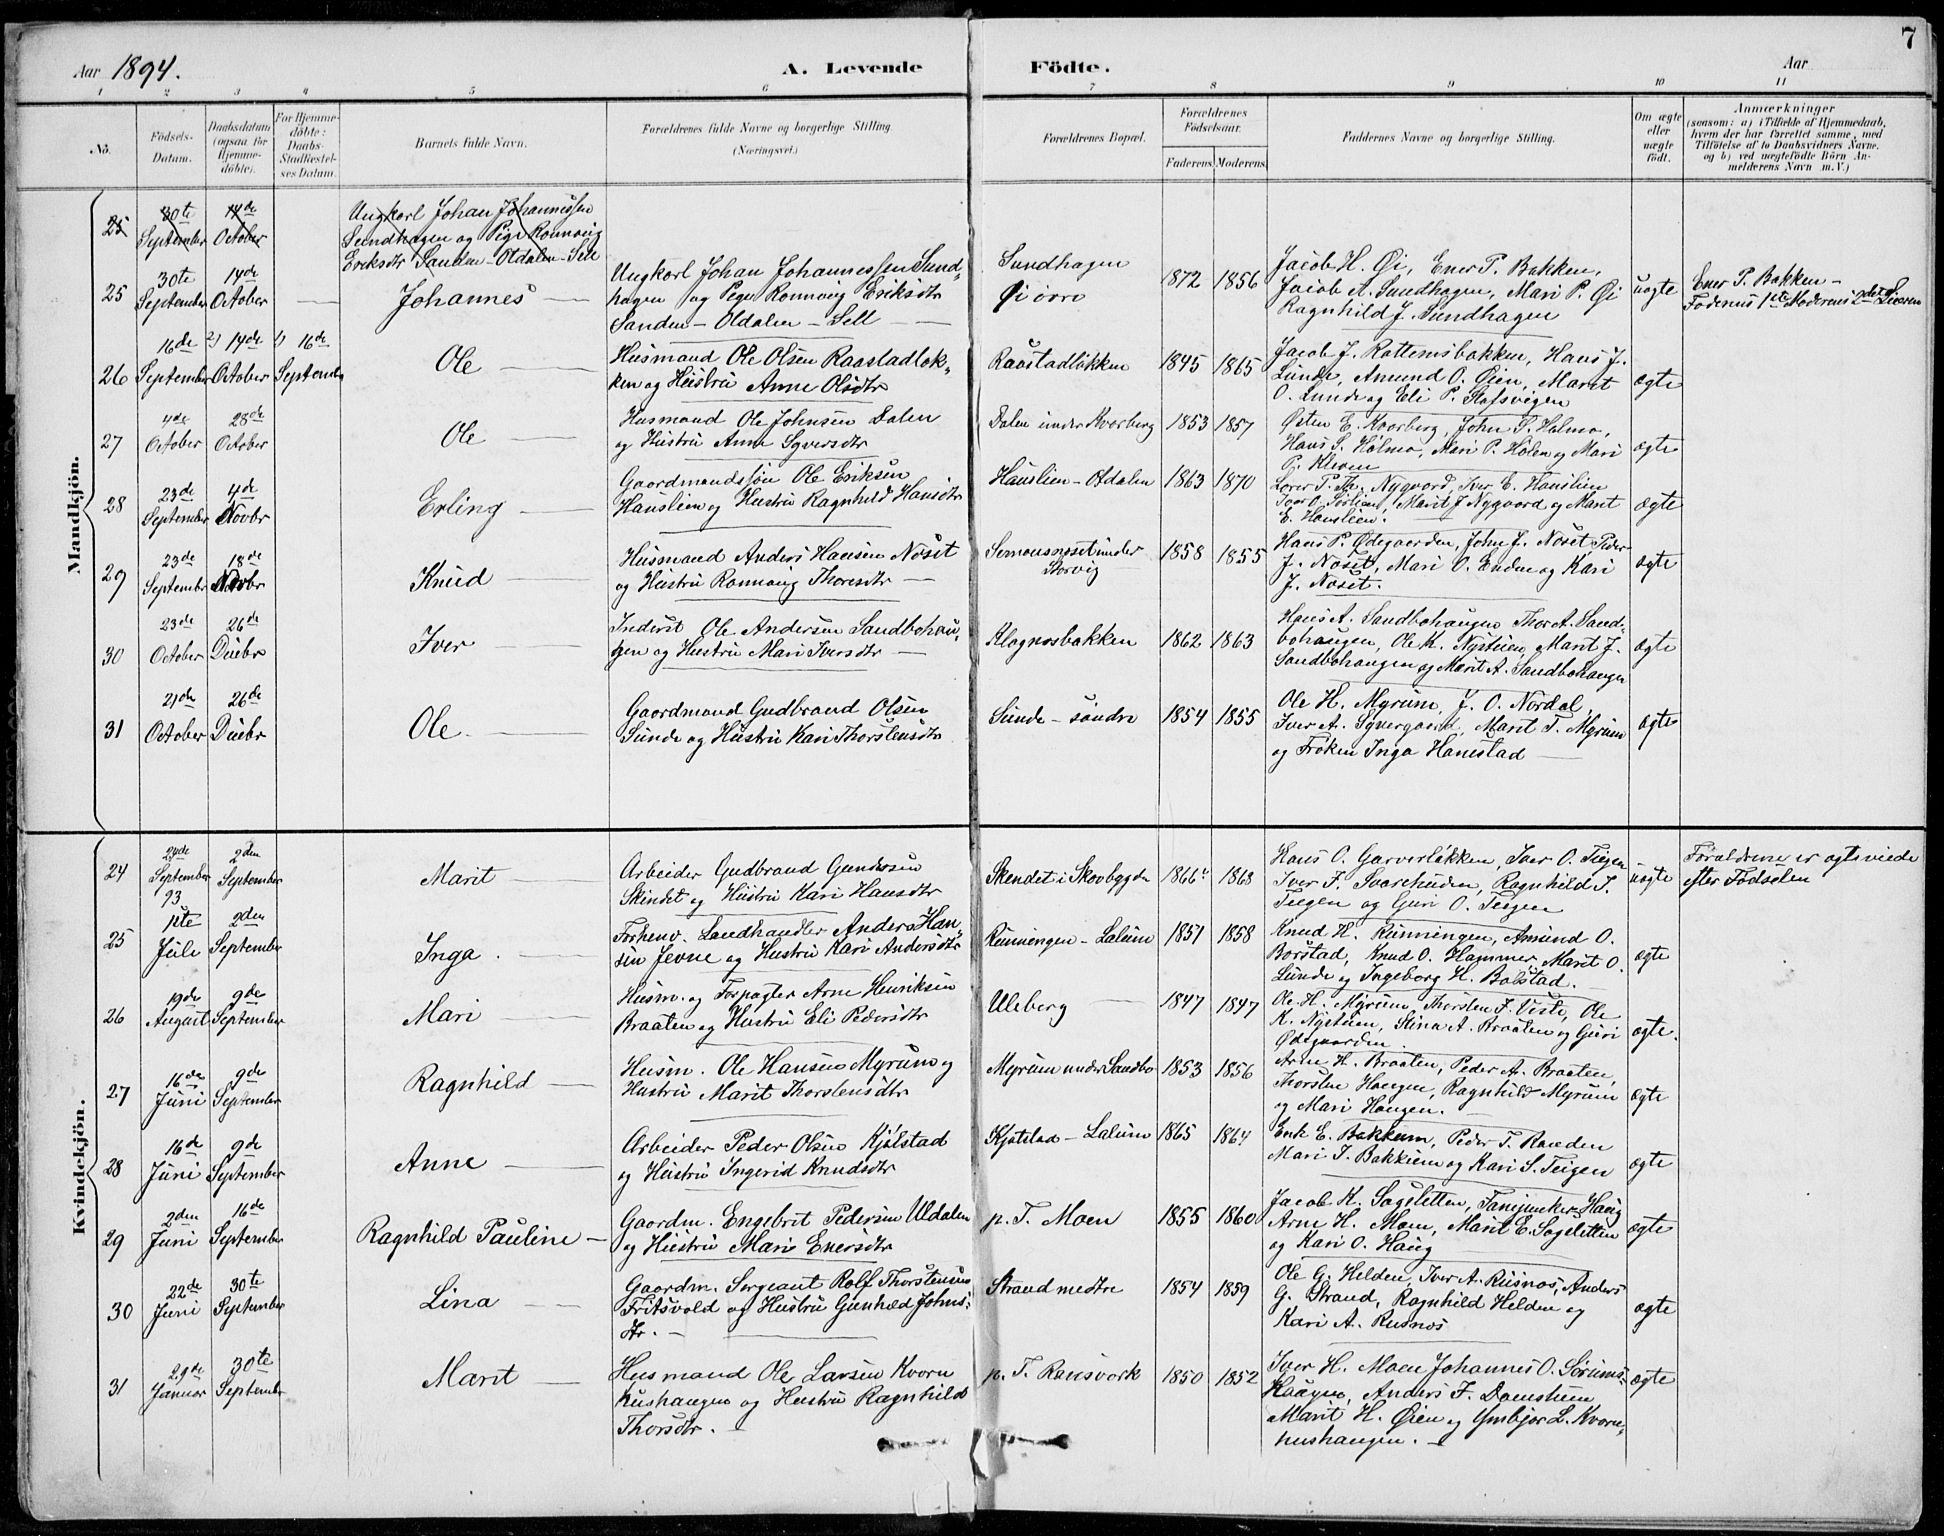 7
Aar 1894. A. Levende Födte. Aar
1 2 3 4 5 6 7 8 9 10 11
No. Födsels-Datum. Daabsdatum (ogsaa for Hjemmedöbte). For Hjemmedöbte: Daabs-Stadfæstelses Datum. Barnets fulde Navn. Forældrenes fulde Navne og borgerlige Stilling. (Næringsvei.) Forældrenes Bopæl. Forældrenes Födselsaar. Faderens Moderens Faddernes Navne og borgerlige Stilling. Om ægte eller uægte födt. Anmærkninger (saasom: a) i Tilfælde af Hjemmedaab, hvem der har forrettet samme, med Tilföielse af to Daabsvidners Navne, og b) ved uægtefödte Börn Anmelderens Navn m.V.)
Mandkjön.
25 30te September 14de October Ungkarl Johan Johannessen
Sundhagen og Pige Rønnaug
Eriksdtr Sanden - Otdalen - Sell
25 30te September 14de October — Johannes — Ungkarl Johan Johannessen Sund-
hagen og Pige Rønnaug Eriksdtr
Sanden - Otdalen - Sell — Sundhagen
Øi övre 1872 1856 Jacob H. Øi, Ener P. Bakken,
Jacob A. Sundhagen, Mari P. Øi
Ragnhild J. Sundhagen uægte Ener P. Bakken -
Faderens 1ste Moderens 2det
26 16de September 2) 14de October 1) 16de September Ole — Husmand Ole Olsen Raastadløk-
ken og Hustru Anne Olsdtr Raastadløkken 1845 1865 Jacob J. Rottemsbakken, Hans J.
Lunde, Amund O. Øien, Marit
O. Lunde og Eli P. Slafsvigen ægte
27 4de October 28de October Ole — Husmand Ole Johnsen Dalen
og Hustru Anne Syversdtr Dalen under Kvarberg 1853 1857 Østen E. Kvarberg, John S. Holmo,
Hans S. Holmo, Mari P. Holen og Mari
P. Kleven ægte
28 23de September 4de Novbr Erling — Gaardmandssøn Ole Eriksen
Hauslien og Hustru Ragnhild Hansdtr Hauslien - Otdalen 1863 1870 Lærer P. Th. Nygaard, Iver E. Hauslien
Iver O. Sørlien, Marit J Nygaard og Marit
E. Hauslien. ægte
29 23de September 18de Novbr Knud — Husmand Anders Hansen Noset
og Hustru Rønnaug Thoresdtr — Semonsnoset under
Storvig 1858 1855 Hans P. Ødegaarden, John J. Noset, Peder
J. Noset, Mari O. Enden og Kari
J. Noset. ægte
30 23de October 26de Decbr Iver — Inderst Ole Andersen Sandbohau-
gen og Hustru Mari Iversdtr — Klognæsbakken 1862 1863 Hans A. Sandbohaugen Thor A. Sand-
bohaugen, Ole K. Nystuen, Marit J.
Sandbohaugen og Marit A. Sandbohaugen ægte
31 21de October 26de Decbr Ole. — Gaardmand Gudbrand Olsen
Sunde og Hustru Kari Thorstensdtr Sunde - søndre 1854 1855 Ole H. Myrum, J. O. Nordal,
Iver A. Synergaard, Marit T. Myrum
og Frøken Inga Hanestad — ægte
Kvindekjön.
24 24de September 93 2den September Marit — Arbeider Gudbrand Gundersen
Skindet og Hustru Kari Hansdtr Skendet i Skovbygden 1866 1868 Hans O. Garverløkken, Iver O. Teigen
Iver F. Svarehuden, Ragnhild I.
Teigen og Guri O. Teigen uægte Forældrene er ægteviede
efter Fødselen
25 1ste Juli 2den September Inga. — Forhenv. Landhandler Anders Han-
sen Jevne og Hustru Kari Andersdtr Rünningen - Lalum 1851 1858 Knud H. Rünningen, Amund O.
Borstad, Knud O. Hammer, Marit O.
Lunde og Ingeborg H. Bolstad. ægte
26 19de August 9de September Mari — Husm. og Forpagter Arne Henriksen
Braaten og Hustru Eli Pedersdtr Uleberg — 1847 1847 Ole H. Myrum, Thorsten F. Viste, Ole
K. Nystuen, Stina A. Braaten og Guri
Ødegaarden. ægte.
27 16de Juni 9de September Ragnhild — Husm. Ole Hansen Myrum og
Hustru Marit Thorstensdtr Myrum under Sandbo 1853 1856 Arne H. Braaten, Peder A. Braaten,
Thorsten Haugen, Ragnhild Myrum
og Mari Haugen. ægte
28 16de Juni 9de September Anne — Arbeider Peder Olsen Kjølstad
og Hustru Ingerid Knudsdtr Kjølstad - Lalum 1865 1864 Erik E. Bakkum, Peder T. Randen
Mari T. Bakkum og Kari S. Teigen ægte
29 2den Juni 16de September Ragnhild Pauline — Gaardm. Engebrit Pedersen Uldalen
og Hustru Mari Enersdtr p. T. Moen 1855 1860 Jacob K. Sageletten, Haug
Arne H. Moen, Marit E. Sageletten
og Kari O. Haug ægte
30 22de Juni 30te September Lina — Gaardm. Sergeant Rolf Thorstensen
Fritsvold og Hustru Gunhild Johns-
dtr. — Strand nedre 1854 1859 Ole G. Helden, Iver A. Rusnæs, Anders
G. Strand, Ragnhild Helden og
Kari A. Rusnæs ægte
31 29de Januar 30te September Marit — Husmand Ole Larsen Kvern
hushaugen og Hustru Ragnhild
Thorsdtr. — p. T. Ransvork 1850 1852 Iver H. Moen Johannes O. Sørums-
Haugen, Anders F. Damstuen
Marit H. Øien og Ymbjor L. Kvern-
hushaugen. — ægte